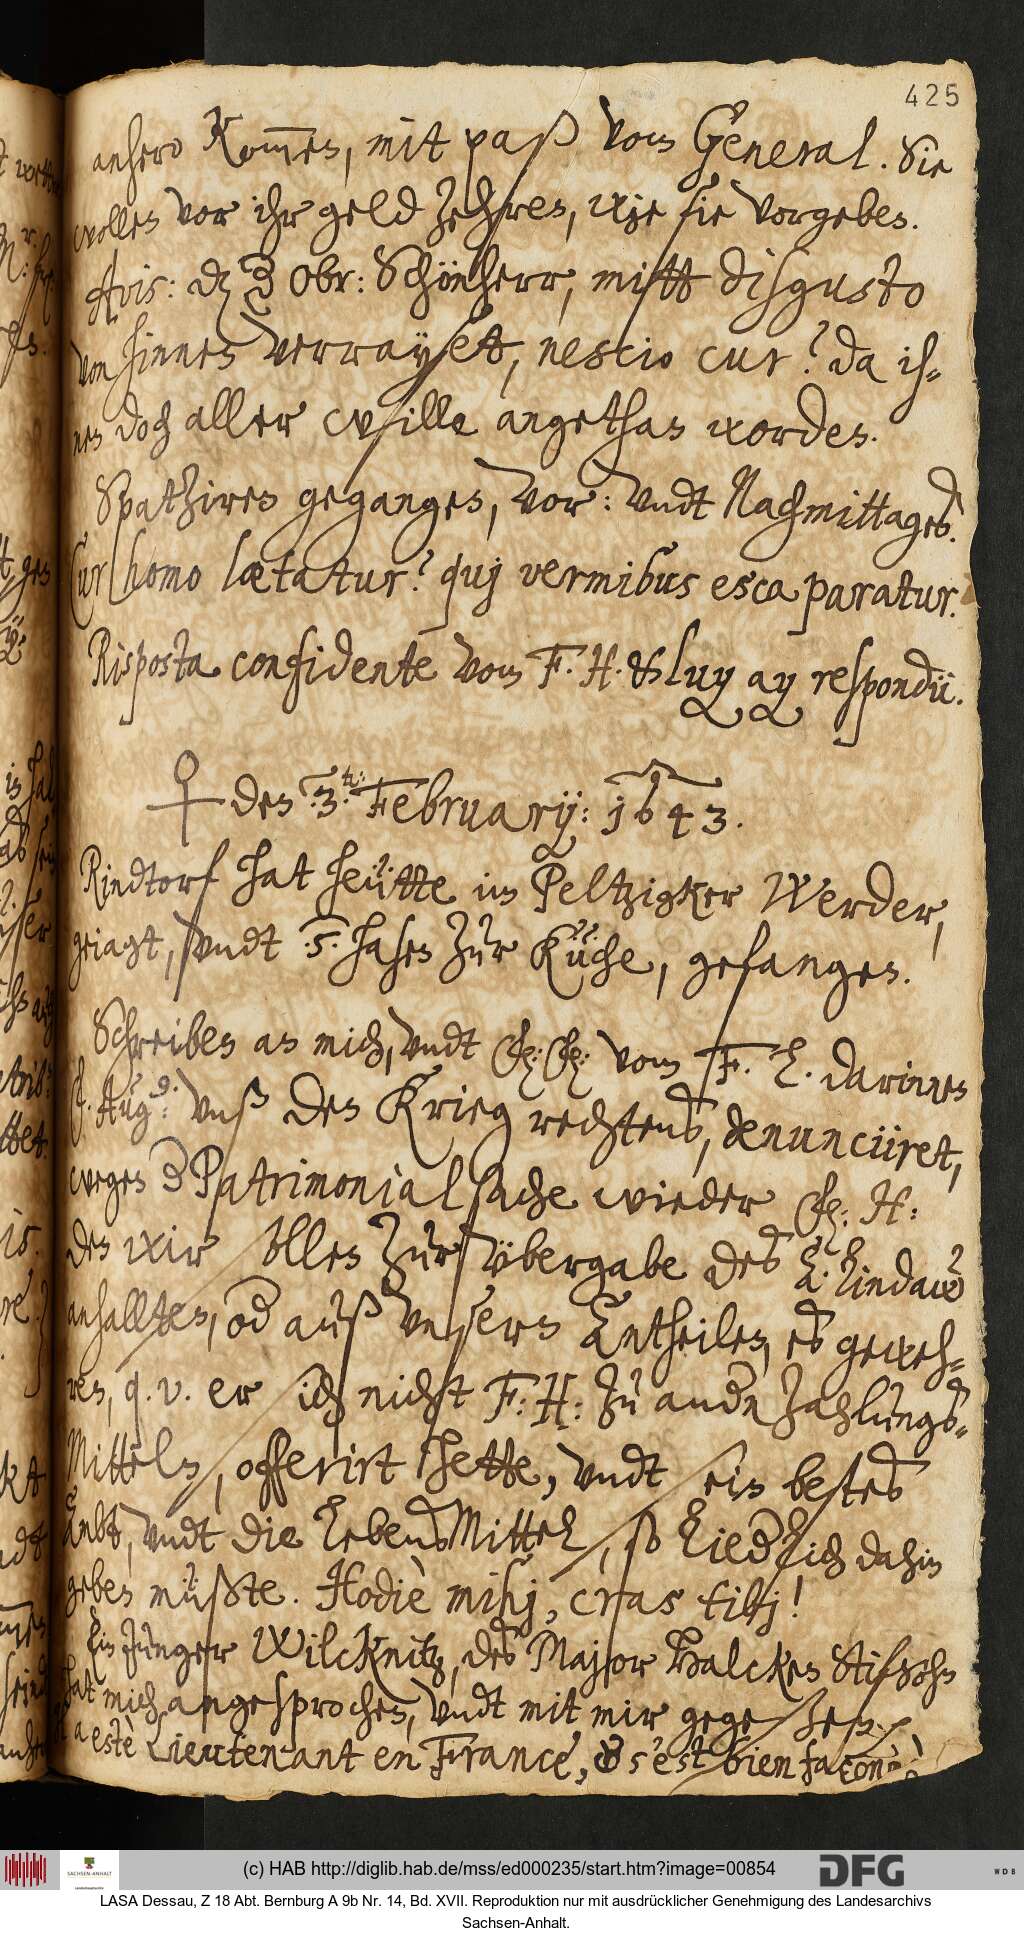 425
anhero kom̅en, mit paß vom General. Sie
wollen vor ihr geld zehren, wie sie vorgeben.
Avis: dz der Obr: Schönherr, mitt disgusto
von hinnen verrayset, nescio cur? da ih-
nen doch aller wille angethan worden.
Spatziren geganges, vor: undt Nachmittages.
Cur homo lætatur? quj vermibus esca paratur.
Risposta confidente vom F. H. & luy ay respondü.
♀ den 3.ten: Februarij: 1643.
Rindtorf hat heütte im Peltzigker Werder,
geiagt, undt .5. hasen zur Küche, gefangen.
Schreiben an mich, undt vom F. L. darinnen
F. Aug: unß den Krieg rechtens, denunciiret,
wegen der Patrimonialsache wieder H:
den wir sollen zur übergabe des A. Lindaw
anhallten, oder auß unsern Antheilen, es geweh-
ren, q. v. er ich nicht F: H: zu andern zahlungs-
Mitteln, offerirt hette, undt sein bestes
Ambt, undt die LebensMittel, so liederlich dahin
geben müßte. Hodiè mihj, cras tibj!
Ein Junger Wilcknitz, des Major Halcken Stifsohn
hat mich angesprochen, undt mit mir gegeßen.
Il a estè Lieutenant en France, & s'est bien façonnè
(c) HAB http://diglib.hab.de/mss/ed000235/start.htm?image=00854
DFG
WDB
SACHSEN-ANHALT
LASA Dessau, Z 18 Abt. Bernburg A 9b Nr. 14, Bd. XVII. Reproduktion nur mit ausdrücklicher Genehmigung des Landesarchivs
Sachsen-Anhalt.